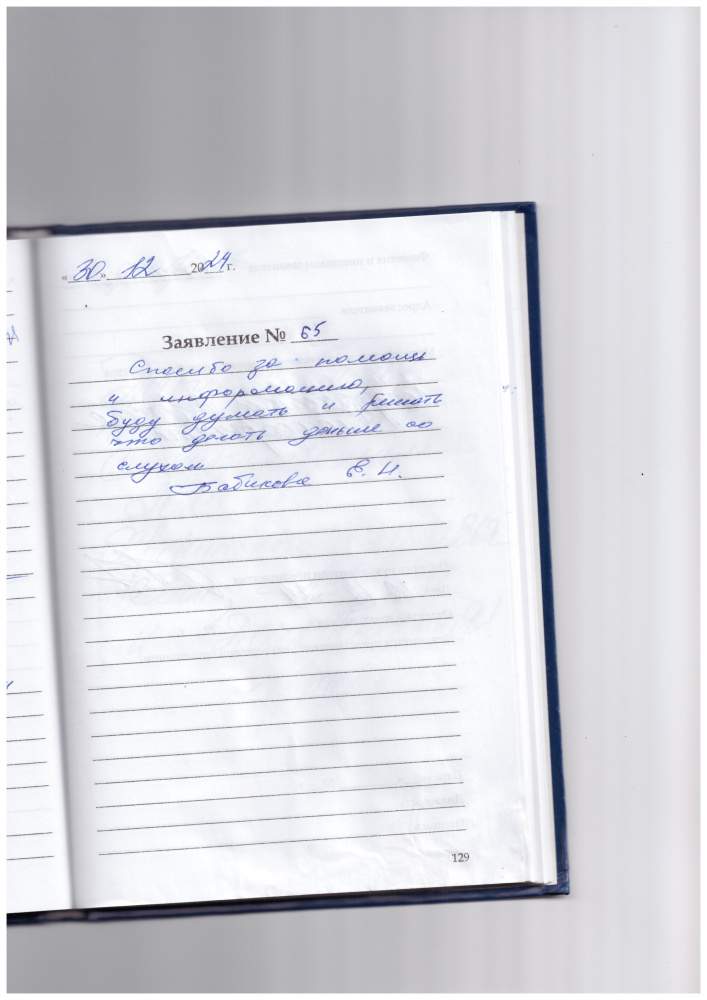 «30» 12 2024 г.
Заявление № 65
Спасибо за помощь
и информацию,
буду думать и решать
что делать дальше со
слухом
Бабикова В. Н.
129